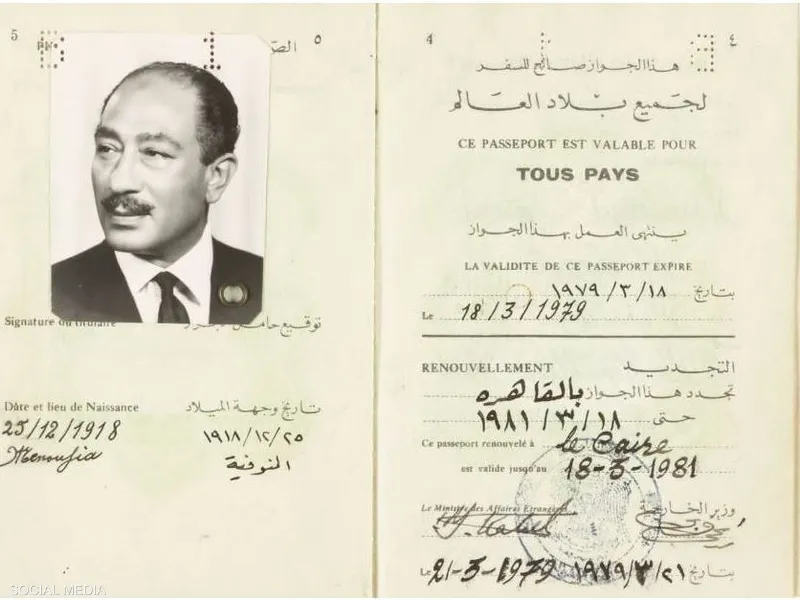 5
٥
الص
Signature du titulaire
توقيع حامل
Dâte et lieu de Naissance
تاريخ وجهة الميلاد
25/12/1918
١٩١٨/١٢/٢٥
Menoufia
المنوفية
SOCIAL MEDIA
4
٤
هذا الجواز صالح للسفر
لجميع بلاد العالم
CE PASSEPORT EST VALABLE POUR
TOUS PAYS
ينتهى العمل بهذا الجواز
LA VALIDITE DE CE PASSEPORT EXPIRE
بتاريخ ١٩٧٩/٣/١٨
Le 18/3/1979
RENOUVELLEMENT
التجديد
تجدد هذا الجواز بالقاهره
حتى ١٩٨١/٣/١٨
Ce passeport renouvelé à le Caire
est valide jusqu'au 18-3-1981
Le Ministre des Affaires Etrangères
وزير الخارجية
Le 21-3-1979
بتاريخ ١٩٧٩/٣/٢١